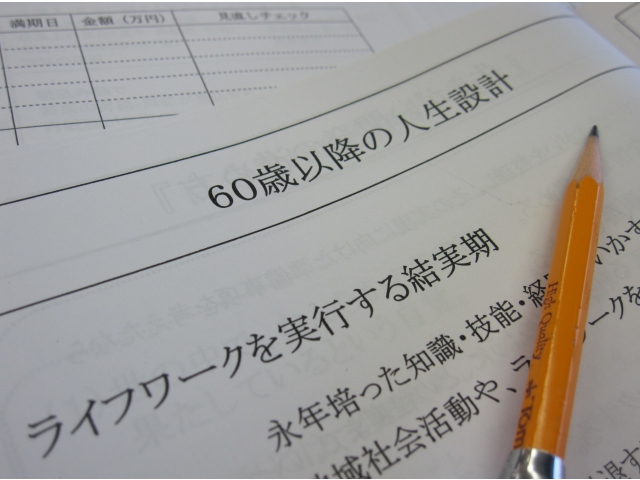 満期日 金額（万円） 見直しチェック
60歳以降の人生設計
ライフワークを実行する結実期
永年培った知識・技能・経 いかす
域社会活動や、ラ ークを
High Quality
Tom